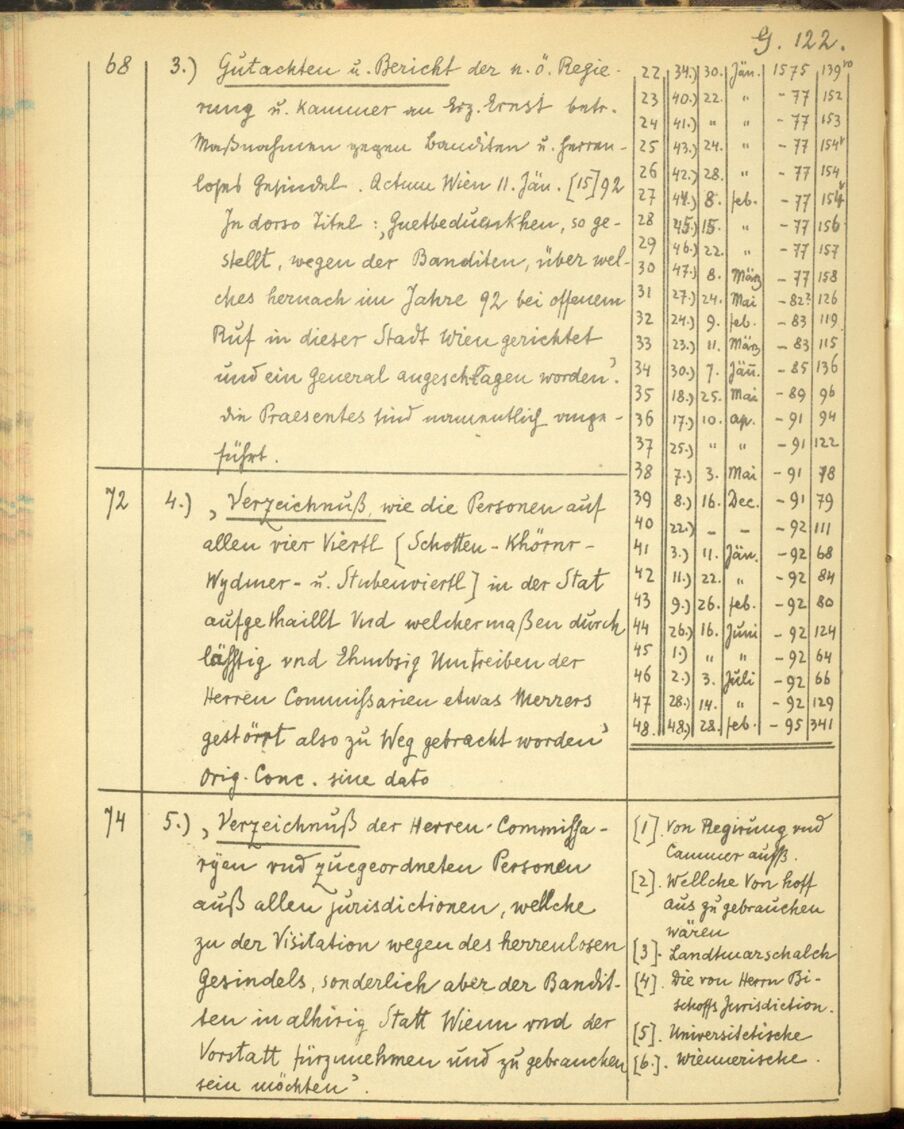 G. 122.
68 3.) Gutachten u. Bericht der n. ö. Regie-
rung u. Kammer an Erz. Ernst betr.
Maßnahmen gegen Banditen u. herren-
loses Gesindel. Actum Wien 11. Jän. [15]92
In dorso Titel: „Guetbedunkhen, so ge-
stellt, wegen der Banditen, über wel-
ches hernach im Jahre 92 bei offenem
Ruf in dieser Stadt Wien gerichtet
und ein General angeschlagen worden“.
Die Praesentes sind namentlich ange-
führt.
72 4.) „Verzeichnuß, wie die Personen auf
allen vier Viertl [Schotten- Khörnr-
Wydmer- u. Stubenviertl] in der Stat
aufgethaillt Vnd welchermaßen durch
vnd Ehmbsig Umtreiben der
Herren Commissarien etwas
also zu Weg gebracht worden“
Orig. Conc. sine dato
74 5.) „Verzeichnuß der Herren Commissa-
ryen vnd zuegeordneten Personen
auß allen jurisdictionen, welche
zu der Visitation wegen des herrenlosen
Gesindels, sonderlich aber der Bandit-
ten in alhirig Statt Wienn vnd der
Vorstatt fürzunehmen und zu gebrauchen
sein möchten“.
22 34.) 30. Jän. 1575 139vo
23 40.) 22. " -77 152
24 41.) " " -77 153
25 43.) 24. " -77 154v
26 42.) 28. " -77 154
27 44.) 8. feb. -77 154v
28 45.) 15. " -77 156
29 46.) 22. " -77 157
30 47.) 8. März -77 158
31 27.) 24. Mai -82? 126
32 24.) 9. feb. -83 119
33 23.) 11. März -83 115
34 30.) 7. Jän. -85 136
35 18.) 25. Mai -89 96
36 17.) 10. ap. -91 94
37 25.) " " -91 122
38 7.) 3. Mai -91 78
39 8.) 16. Dec. -91 79
40 22.) - - -92 111
41 3.) 11. Jän. -92 68
42 11.) 22. " -92 84
43 9.) 26. feb. -92 80
44 26.) 16. Juni -92 124
45 1.) " " -92 64
46 2.) 3. Juli -92 66
47 28.) 14. " -92 129
48. 48.) 28. feb. -95 341
[1]. Von Regirung vnd
Cammer auß.
[2]. Wellche Von hoff
aus zu gebrauchen
wären
[3]. Landtmarschalch
[4]. Die von Herrn Bi-
schoffs Jurisdiction.
[5]. Universitetische
[6.]. Wiennerische.